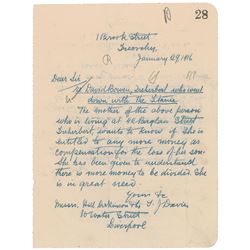 28
1 Brook Street
Treorchy,
January 29, 1916
Dear Sir
David Bowen, Treherbert who went
down with the Titanic
The mother of the above person
who is living at 42 Baglan Street
Treherbert, wants to know if she is
entitled to any more money as
compensation for the loss of his son.
She has been given to understand
there is more money to be divided. She
is in great need
Yours &c
Messrs. Hill Dickinson & Co T. J Davies
10 Water Street
Liverpool